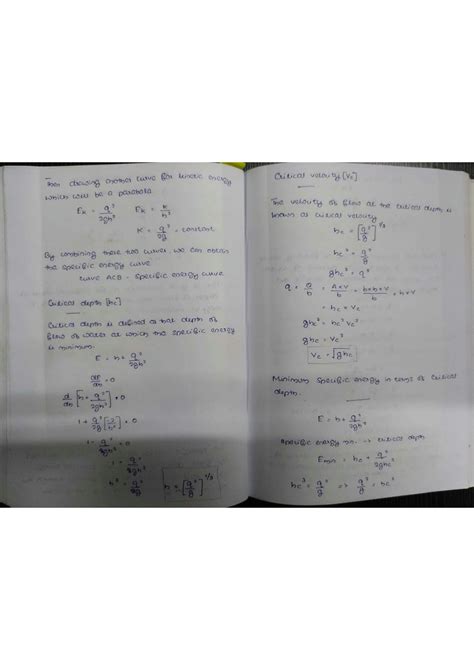 Then drawing another curve for kinetic energy
which will be a parabola
E_K = q²/2gh²   E_K = K/h²
K = q²/2g = constant
By combining these two curves, we can obtain
the specific energy curve
curve ACB - Specific energy curve
Critical depth [hc]
Critical depth is defined as that depth of
flow of water at which the specific energy
is minimum.
E = h + q²/2gh²
dE/dh = 0
d/dh [h + q²/2gh²] = 0
1 + q²/2g [-2/h³] = 0
1 - q²/gh³ = 0
1 = q²/gh³
h³ = q²/g   h = [q²/g]^1/3
Critical velocity [Vc]
The velocity of flow at the critical depth is
known as critical velocity
hc = [q²/g]^1/3
hc³ = q²/g
ghc³ = q²
q = Q/b = A×V/b = b×h×V/b = h×V
= hc × Vc
ghc³ = hc² Vc²
ghc = Vc²
Vc = √ghc
Minimum Specific energy in terms of critical
depth.
E = h + q²/2gh²
Specific energy mn. => critical depth
Emn = hc + q²/2ghc²
hc³ = q²/g => q²/g = hc³